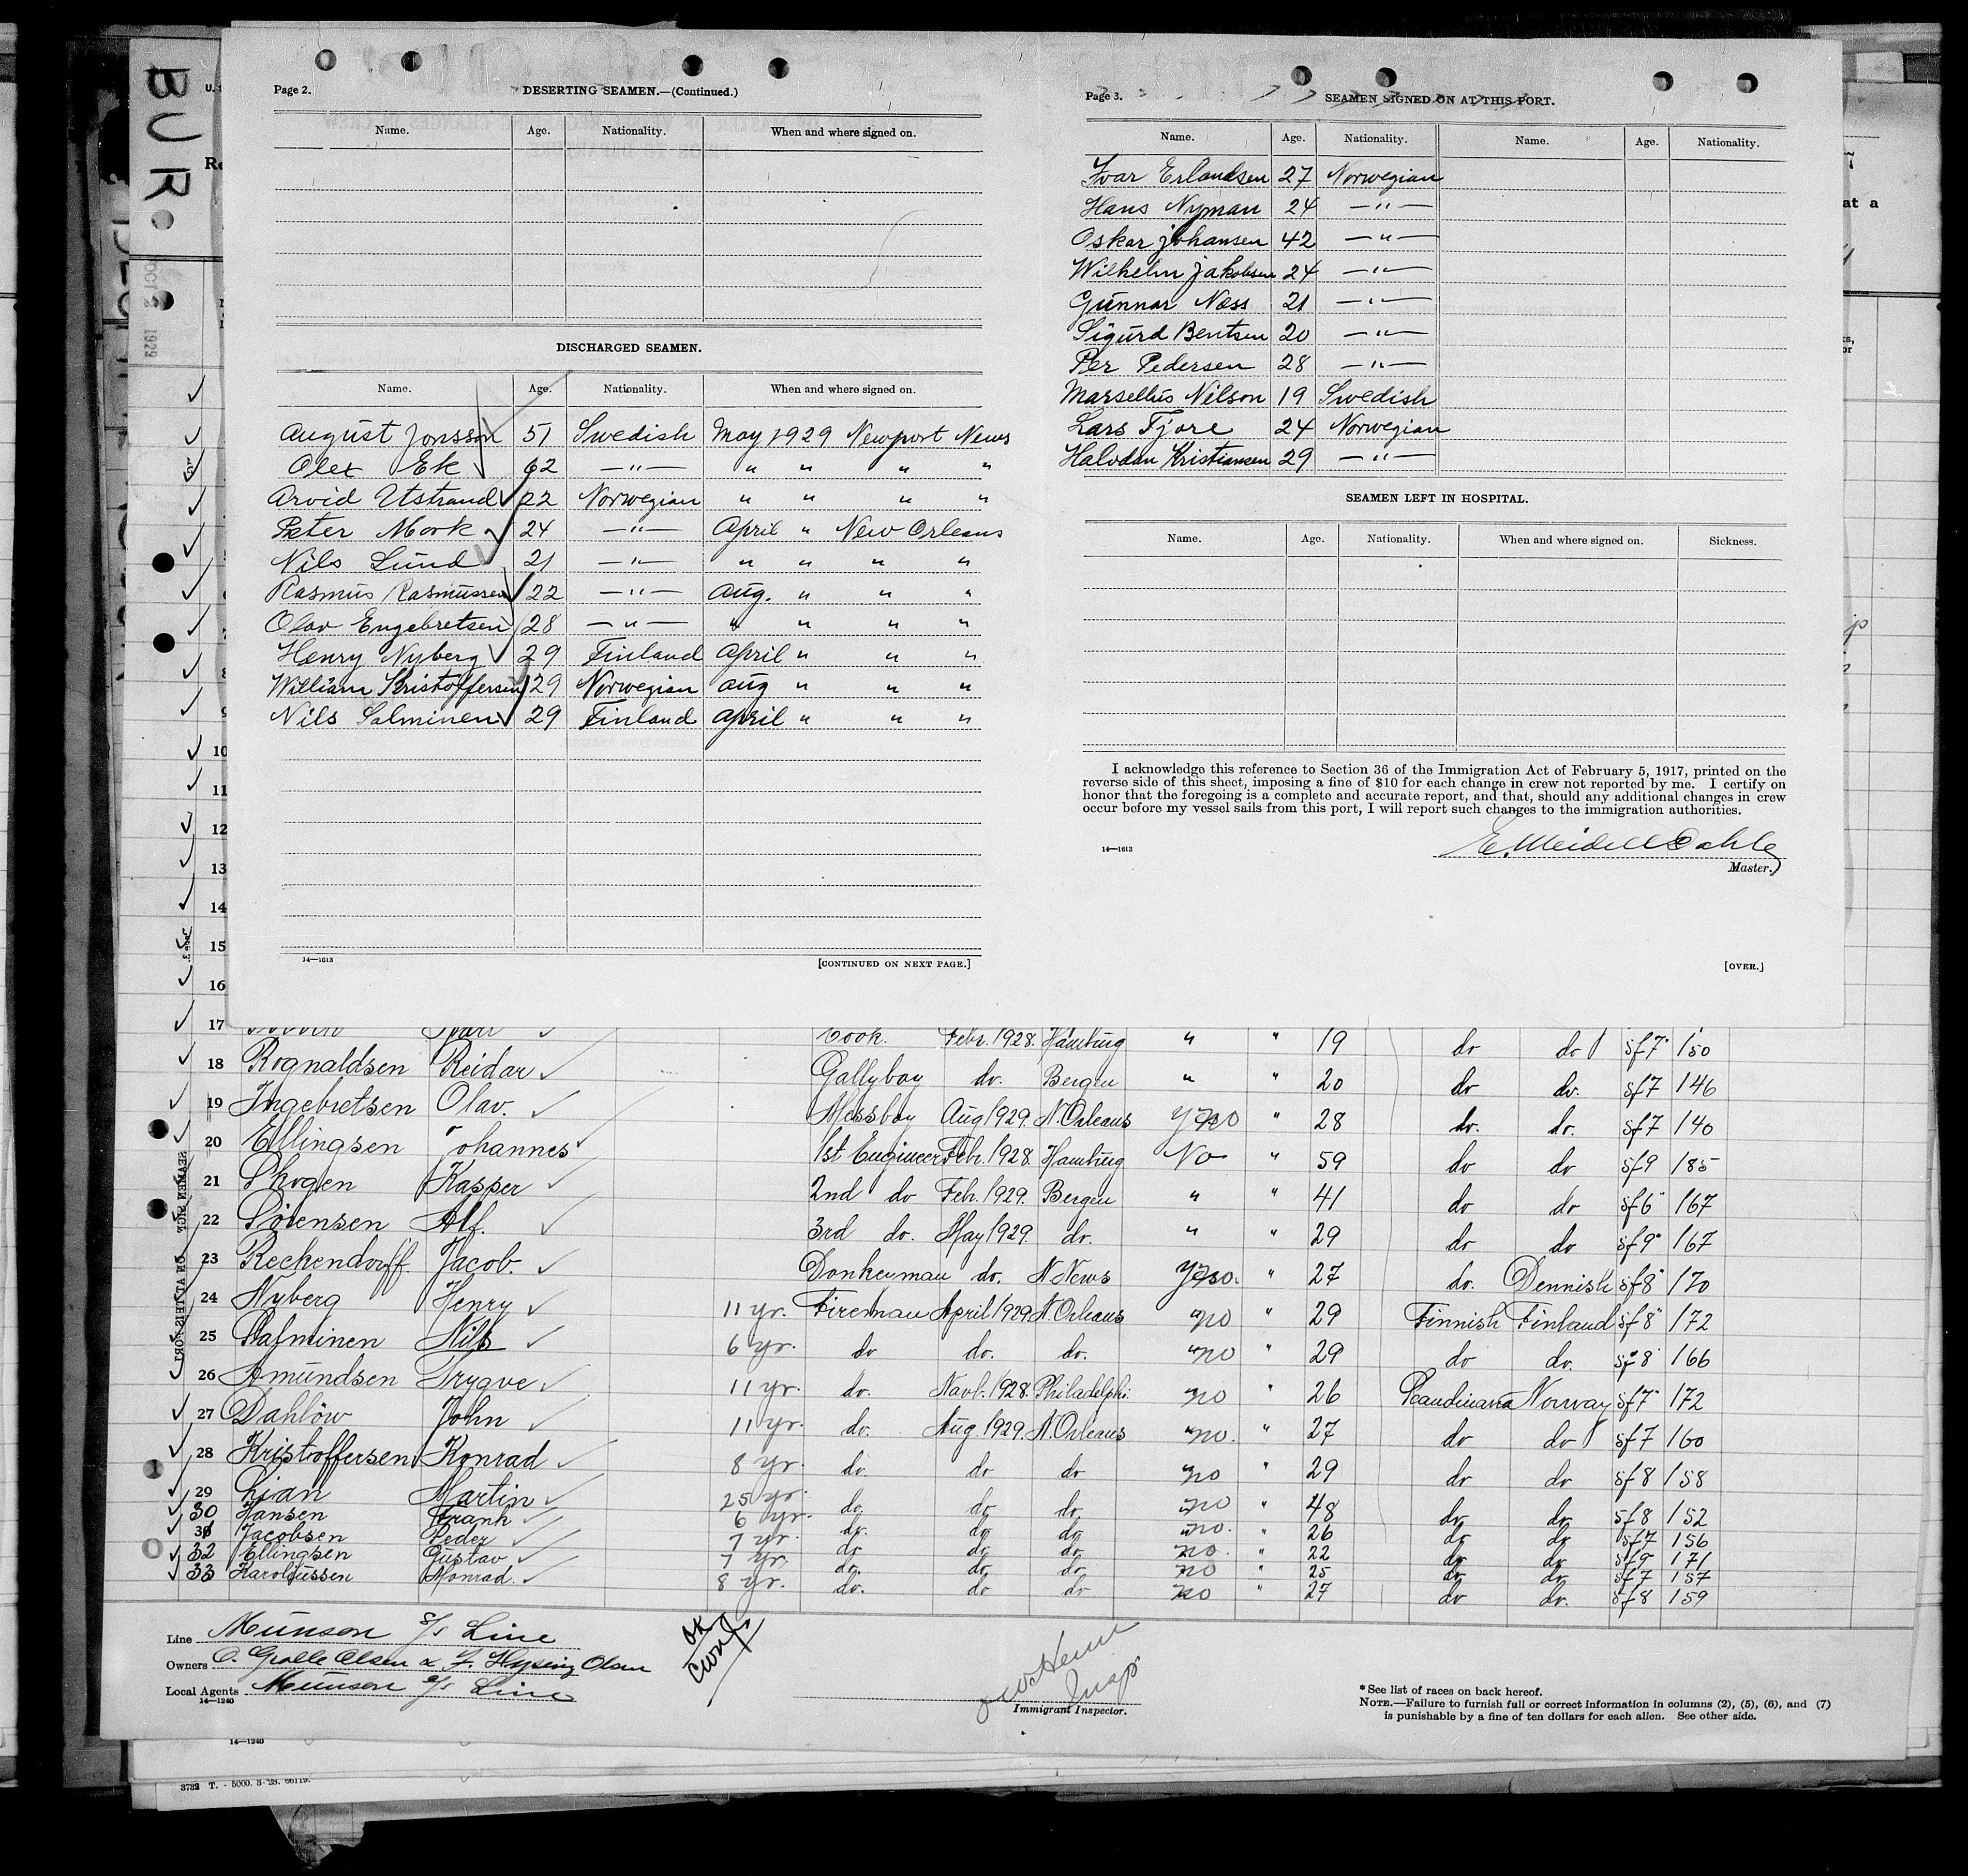 BUR
U.
Re
OCT 3 1929
Page 2.
DESERTING SEAMEN.—(Continued.)
Name. Age. Nationality. When and where signed on.
DISCHARGED SEAMEN.
Name. Age. Nationality. When and where signed on.
August Jonsson 51 Swedish May 1929 Newport News
Olex Ek 62 —"— " " " "
Arvid Utstrand 22 Norwegian " " " "
Peter Mork 24 —"— April " New Orleans
Nils Lund 21 —"— " " " "
Rasmus Rasmussen 22 —"— Aug. " " "
Olav Engebretsen 28 —"— " " " "
Henry Nyberg 29 Finland April " " "
William Kristoffersen 29 Norwegian Aug " " "
Nils Salminen 29 Finland April " " "
14—1613
[CONTINUED ON NEXT PAGE.]
Page 3.
SEAMEN SIGNED ON AT THIS PORT.
Name. Age. Nationality. Name. Age. Nationality.
Ivar Erlandsen 27 Norwegian
Hans Nyman 24 —"—
Oskar Johansen 42 —"—
Wilhelm Jakobsen 24 —"—
Gunnar Næss 21 —"—
Sigurd Bentsen 20 —"—
Per Pedersen 28 —"—
Marsellius Nilson 19 Swedish
Lars Fjore 24 Norwegian
Halvdan Kristiansen 29 —"—
SEAMEN LEFT IN HOSPITAL.
Name. Age. Nationality. When and where signed on. Sickness.
I acknowledge this reference to Section 36 of the Immigration Act of February 5, 1917, printed on the
reverse side of this sheet, imposing a fine of $10 for each change in crew not reported by me. I certify on
honor that the foregoing is a complete and accurate report, and that, should any additional changes in crew
occur before my vessel sails from this port, I will report such changes to the immigration authorities.
E. Meidell Dahle
14—1613
Master.
[OVER.]
at a
8
9
10
11
12
13
14
15
16
17 Cook. Febr. 1928. Hamburg " " 19 do do 5f7 150
18 Rognaldsen Reidar Gallyboy do. Bergen " " 20 do do. 5f7 146
19 Ingebretsen Olav. Messboy Aug 1929. N. Orleans no " 28 do. do. 5f7 140
20 Ellingsen Johannes 1st Engineer Febr. 1928. Hamburg No " 59 do do 5f9 185
21 Skogen Kasper 2nd do Feb. 1929. Bergen " " 41 do do 5f6 167
22 Sörensen Alf. 3rd do. May 1929. do. " " 29 do do 5f9 167
23 Reckendorff. Jacob. Donkeyman do. N News no. " 27 do. Dennish 5f8 170
24 Nyberg Henry 11 yr. Fireman April 1929 N. Orleans no " 29 Finnish Finland 5f8 172
25 Salminen Nils 6 yr. do do. do. no " 29 do do. 5f8 166
26 Amundsen Trygve 11 yr. do. Novb. 1928. Philadelphi. no " 26 Scandinavia Norway 5f7 172
27 Dahlöw John 11 yr. do. Aug. 1929. N. Orleans no. " 27 do do 5f7 160
28 Kristoffersen Konrad 8 yr. do. do do no " 29 do do 5f8 158
29 Lian Martin 25 yr. do. do. do. no " 48 do. do. 5f8 152
30 Hansen Frank 6 yr. do. do do no. " 26 do do 5f7 156
31 Jacobsen Peder 7 yr. do do. do. no. " 22 do. do. 5f9 171
32 Ellingsen Gustav 7 yr. do. do. do. no " 25 do. do. 5f7 157
33 Haroldussen Monrad. 8 yr. do. do do no " 27 do do. 5f8 159
SEAMEN SIGL
Line Munson S/S Line
Owners O. Grolle Olsen & F. Hysing Olsen
Local Agents Munson S/S Line
14—1240
OK
Insp.
Immigrant Inspector.
*See list of races on back hereof.
NOTE.—Failure to furnish full or correct information in columns (2), (5), (6), and (7)
is punishable by a fine of ten dollars for each alien. See other side.
14—1240
3782 T. - 5000. 3-28. 66119.